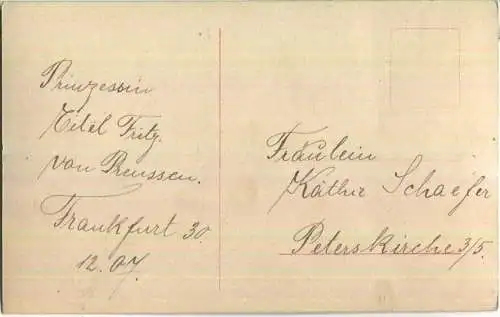 Prinzessin
Eitel Fritz.
von Preussen.
Frankfurt 30.
12.07.
Fräulein
Käthe Schaefer
Peterskirche 3/5.